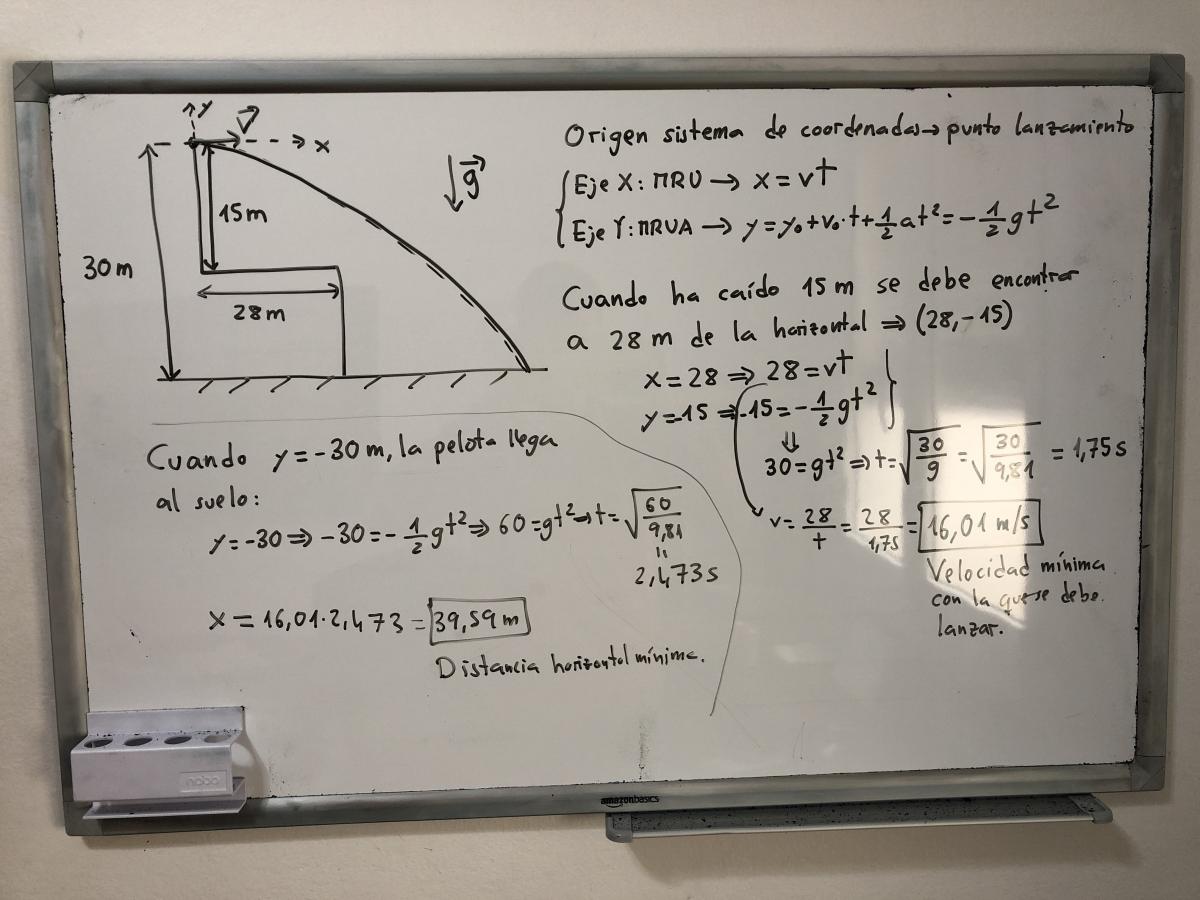 y
v⃗
x
15m
30m
28m
g⃗
Origen sistema de coordenadas→ punto lanzamiento
Eje X: MRU → x = vt
Eje Y: MRUA → y = y₀ + v₀·t + 1/2 at² = -1/2 gt²
Cuando ha caído 15 m se debe encontrar
a 28 m de la horizontal ⇒ (28,-15)
x = 28 ⇒ 28 = vt
y = -15 ⇒ -15 = -1/2 gt²
⇓
30 = gt² ⇒ t = √(30/g) = √(30/9,81) = 1,75 s
v = 28/t = 28/1,75 = 16,01 m/s
Velocidad mínima
con la que se debe
lanzar.
Cuando y = -30 m, la pelota llega
al suelo:
y = -30 ⇒ -30 = -1/2 gt² ⇒ 60 = gt² ⇒ t = √(60/9,81)
=
2,473 s
x = 16,01 · 2,473 = 39,59 m
Distancia horizontal mínima.
nobo
amazonbasics